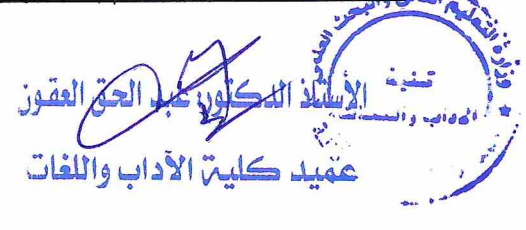 وزارة التعليم العالي والبحث العلمي
الأستاذ الدكتور: عبد الحق العقون
عميد كلية الآداب واللغات